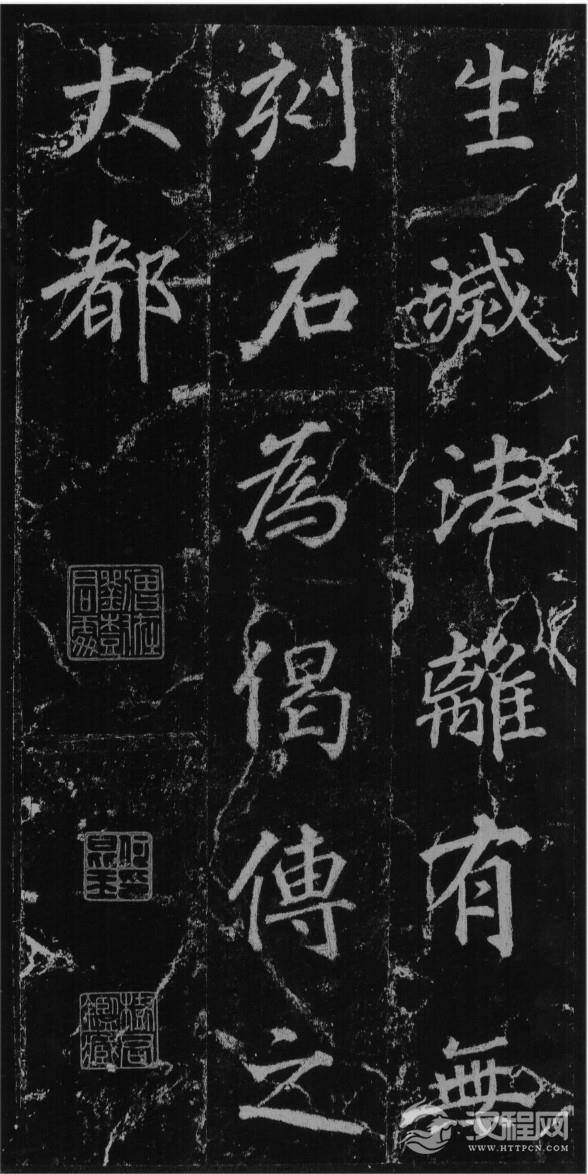 生滅法離有無
刻石為偈傳之
大都
汉程网
WWW.HTTPCN.COM